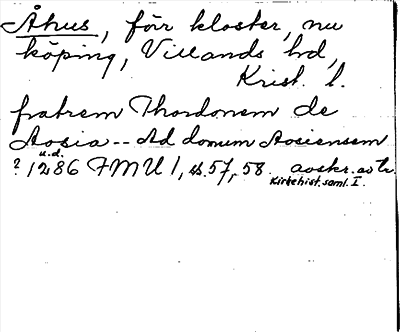 Åhus, förr kloster, nu
köping, Villands hd,
Krist. l.
fratrem Thordonem de
Aosia -- Ad domum Aosiensem
u.d.
? 1286 FMU 1, s. 57, 58. avskr. av tr.
Kirkehist. saml. I.